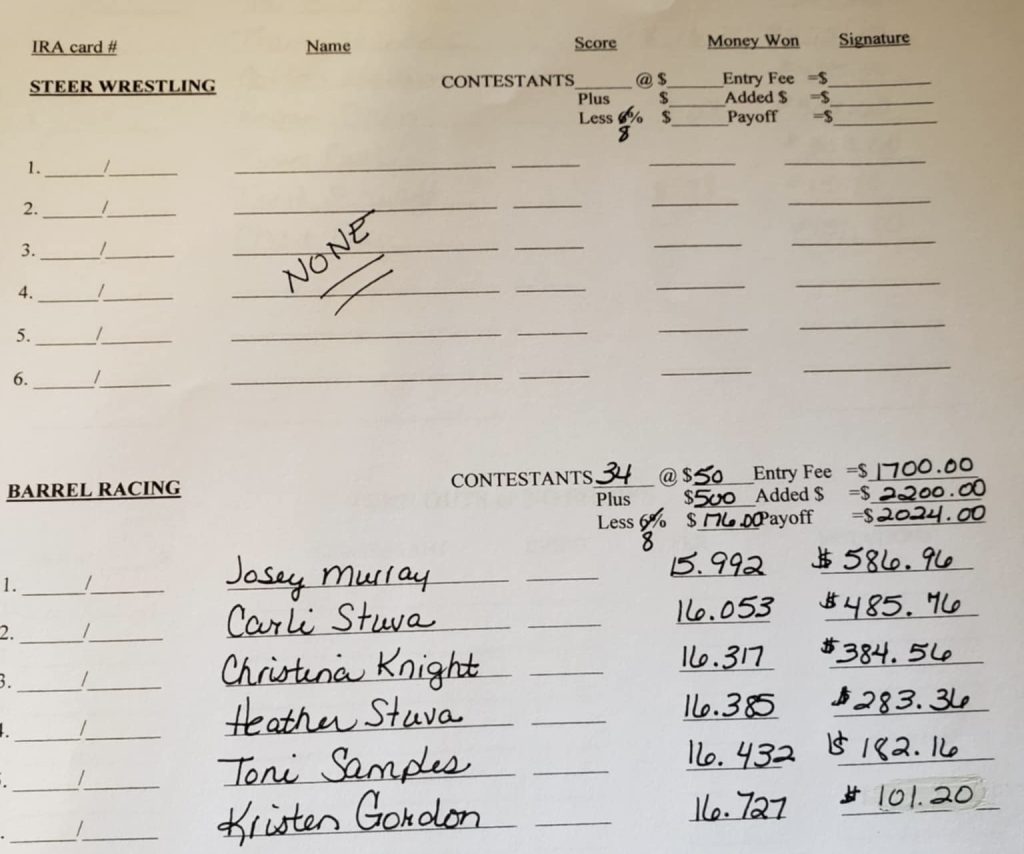 IRA card # Name Score Money Won Signature
STEER WRESTLING CONTESTANTS______ @ $______ Entry Fee =$__________
Plus $______ Added $ =$__________
Less 6% $______ Payoff =$__________
8
1. ______/______
2. ______/______
3. ______/______
NONE
4. ______/______
5. ______/______
6. ______/______
BARREL RACING CONTESTANTS 34 @ $50 Entry Fee =$ 1700.00
Plus $500 Added $ =$ 2200.00
Less 6% $ 176.00 Payoff =$ 2024.00
8
1. ______/______ Josey Murray 15.992 $ 586.96
2. ______/______ Carli Stuva 16.053 $ 485.76
3. ______/______ Christina Knight 16.317 $ 384.56
______/______ Heather Stuva 16.385 $ 283.36
______/______ Toni Samples 16.432 $ 182.16
______/______ Kristen Gordon 16.727 $ 101.20